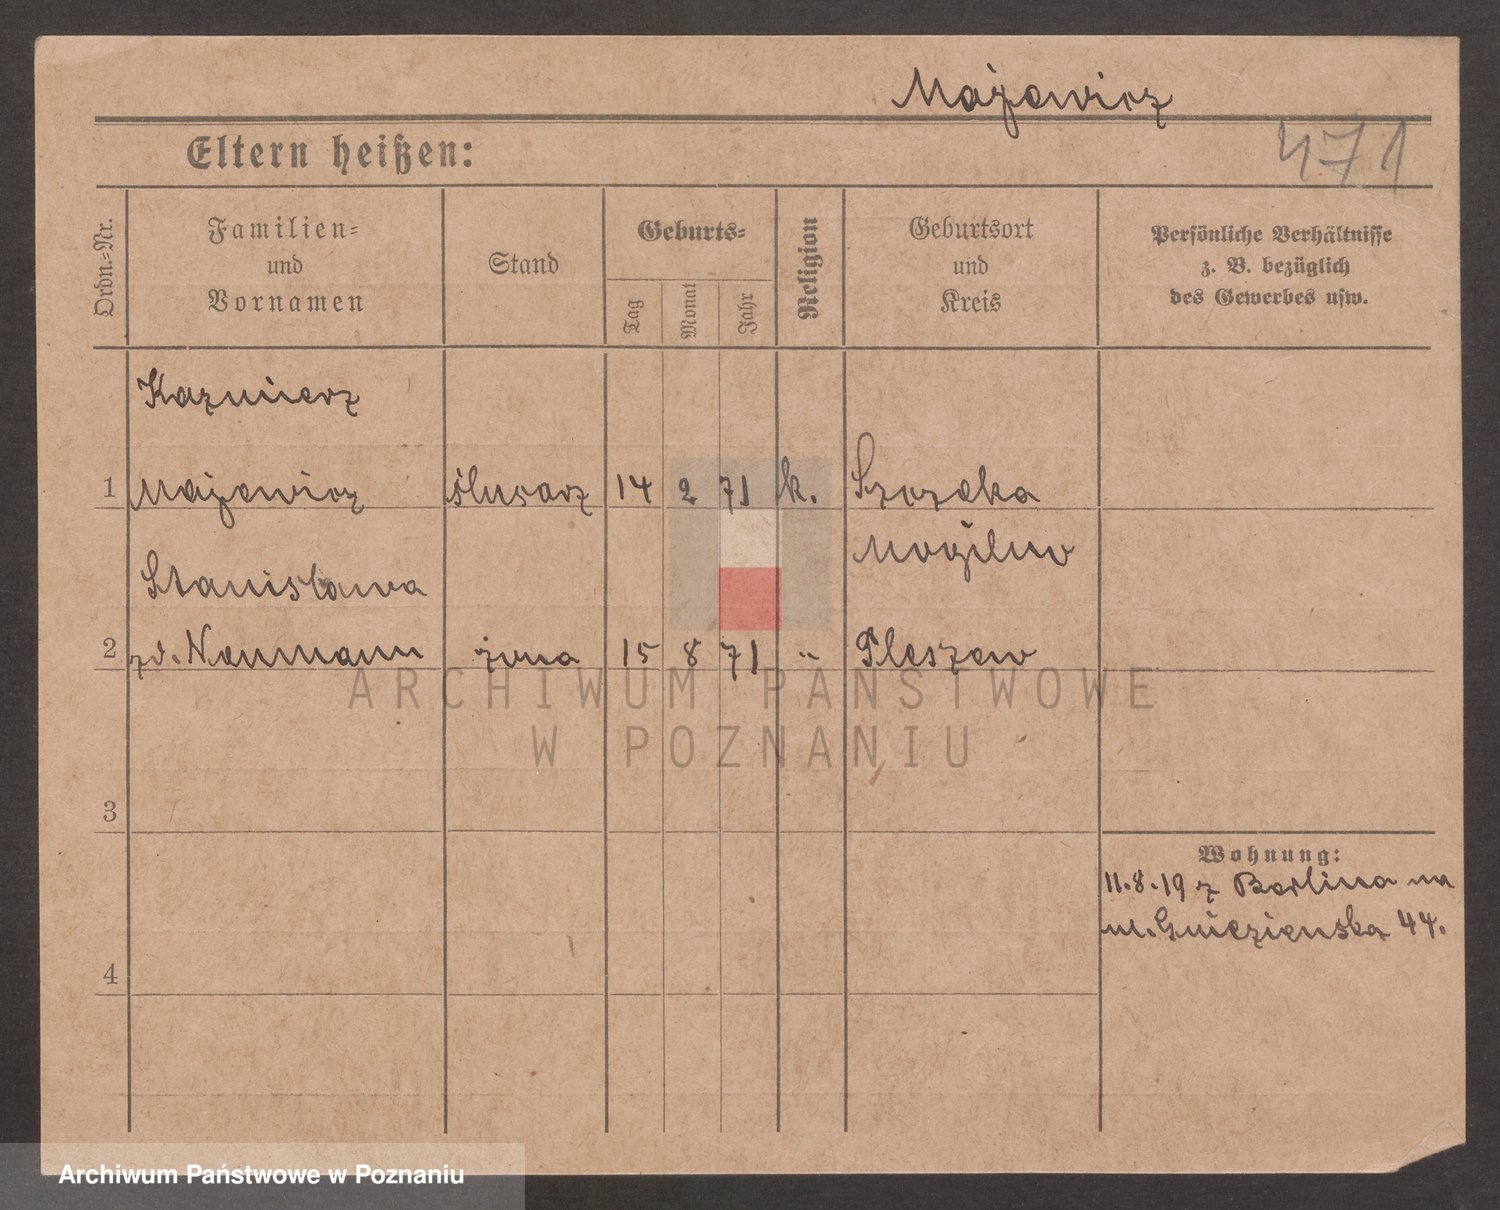 Mazewicz
471
Eltern heißen:
Ordn.-Nr.
Familien-
und
Vornamen
Stand
Geburts-
Tag
Monat
Jahr
Religion
Geburtsort
und
Kreis
Persönliche Verhältnisse
z. B. bezüglich
des Gewerbes usw.
Kazmierz
1 Mazewicz ślusarz 14 2 71 k. Szczeka
Mogilno
Stanisława
2 zd. Neumann żona 15 8 71 " Pleszew
3
Wohnung:
11.8.19 z Berlina na
ul. Gnieźienska 44.
4
ARCHIWUM PAŃSTWOWE
W POZNANIU
Archiwum Państwowe w Poznaniu